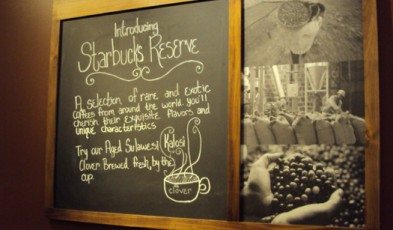 Introducing
Starbucks Reserve
A selection of rare and exotic
coffees from around the world you'll
cherish their exquisite flavors and
unique characteristics
Try our Aged Sulawesi Kalosi
Clover Brewed fresh, by the
cup.
clover